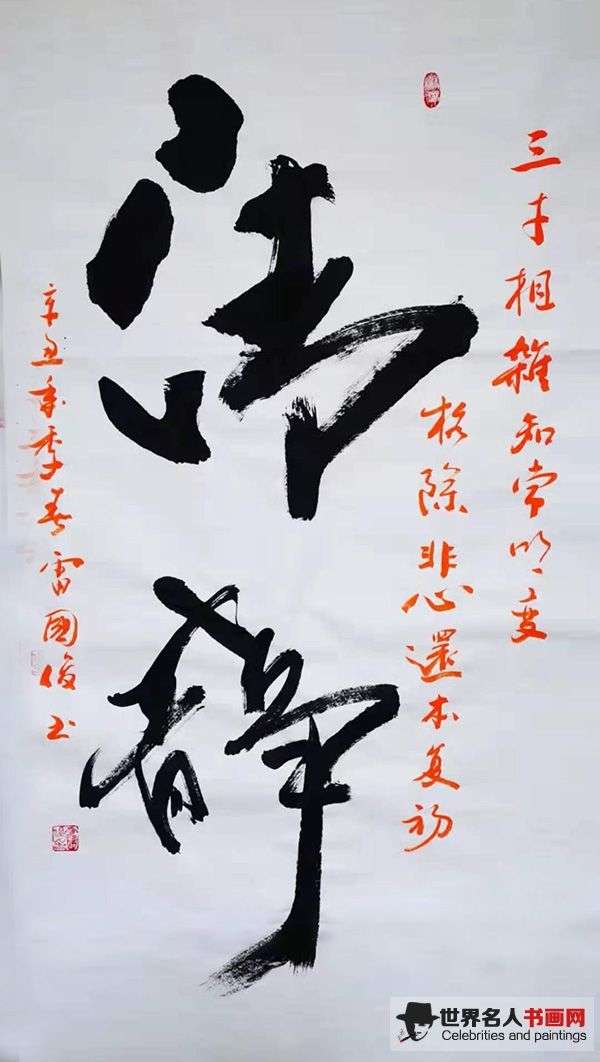 三才相雜知常明变
格除非心還本复初
清静
辛丑年季春雷國俊书
世界名人书画网
Celebrities and paintings